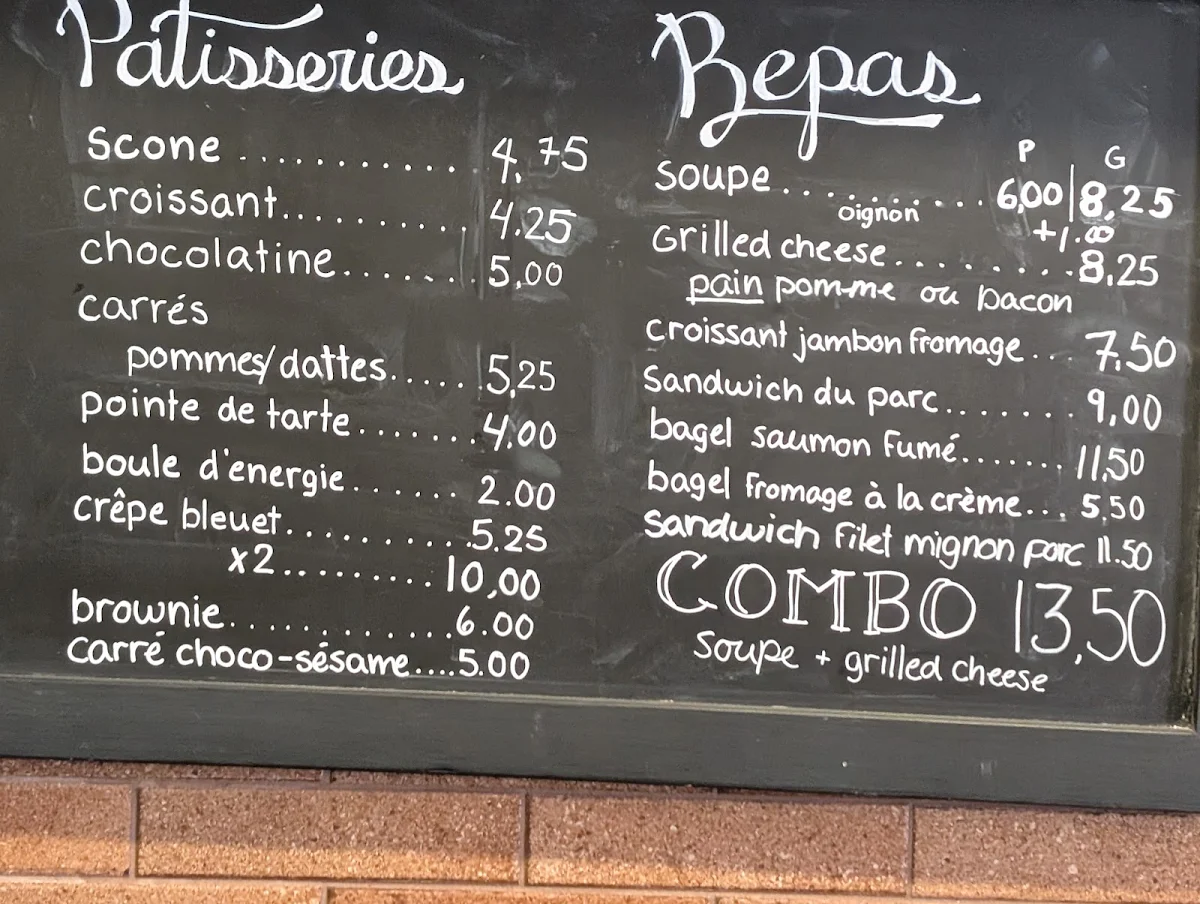 Pâtisseries
scone ........... 4.75
croissant.......... 4.25
chocolatine....... 5,00
carrés
pommes/dattes..... 5,25
pointe de tarte....... 4.00
boule d'energie...... 2.00
crêpe bleuet.......... 5.25
x2......... 10,00
brownie............ 6.00
carré choco-sésame.... 5.00
Repas
P G
soupe........... 6,00|8,25
oignon +1.00
Grilled cheese......... 8,25
pain pomme ou bacon
croissant jambon fromage... 7,50
Sandwich du parc....... 9,00
bagel saumon fumé....... 11,50
bagel fromage à la crème... 5,50
sandwich filet mignon porc 11.50
COMBO 13,50
soupe + grilled cheese